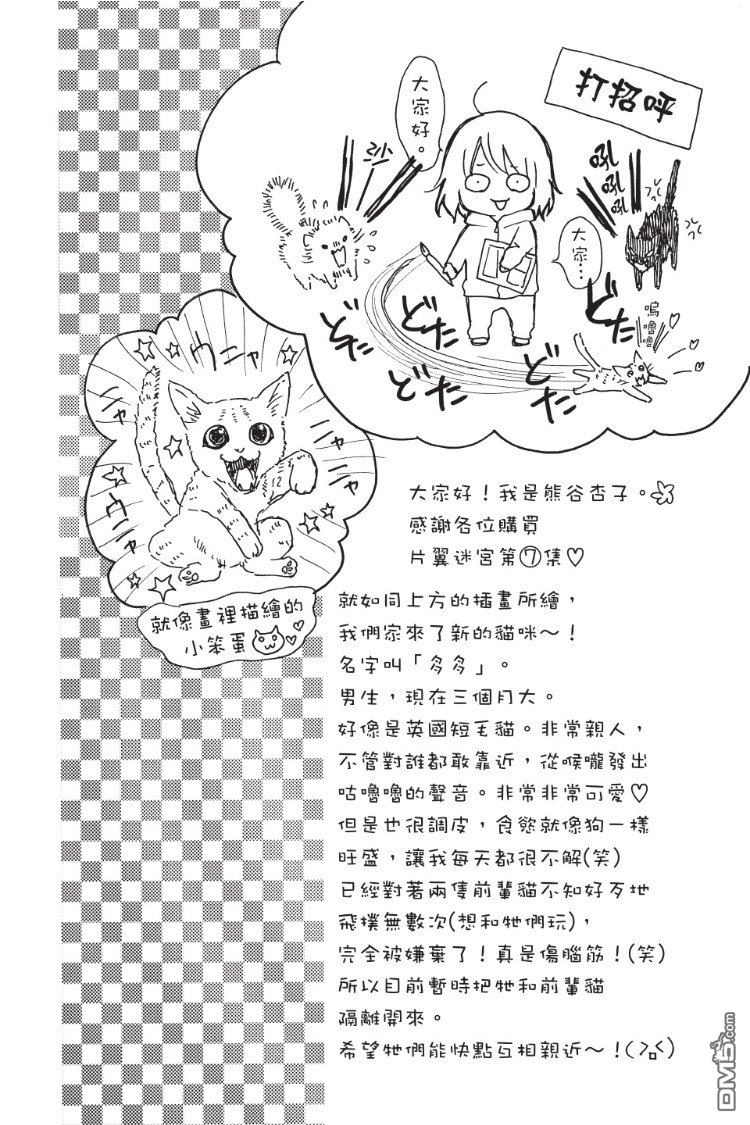 打招呼
大家好。
沙
吼
吼
吼
大家…
嗚
嚕
嚕
どた
どた
どた
どた
どた
どた
ウニャ
ニャ
ウニャ
ニャ
ニャ
就像畫裡描繪的
小笨蛋
大家好！我是熊谷杏子。
感謝各位購買
片翼迷宮第⑦集♡
就如同上方的插畫所繪，
我們家來了新的貓咪～！
名字叫「多多」。
男生，現在三個月大。
好像是英國短毛貓。非常親人，
不管對誰都敢靠近，從喉嚨發出
咕嚕嚕的聲音。非常非常可愛♡
但是也很調皮，食慾就像狗一樣
旺盛，讓我每天都很不解(笑)
已經對著兩隻前輩貓不知好歹地
飛撲無數次(想和牠們玩)，
完全被嫌棄了！真是傷腦筋！(笑)
所以目前暫時把牠和前輩貓
隔離開來。
希望牠們能快點互相親近～！
DM5.com